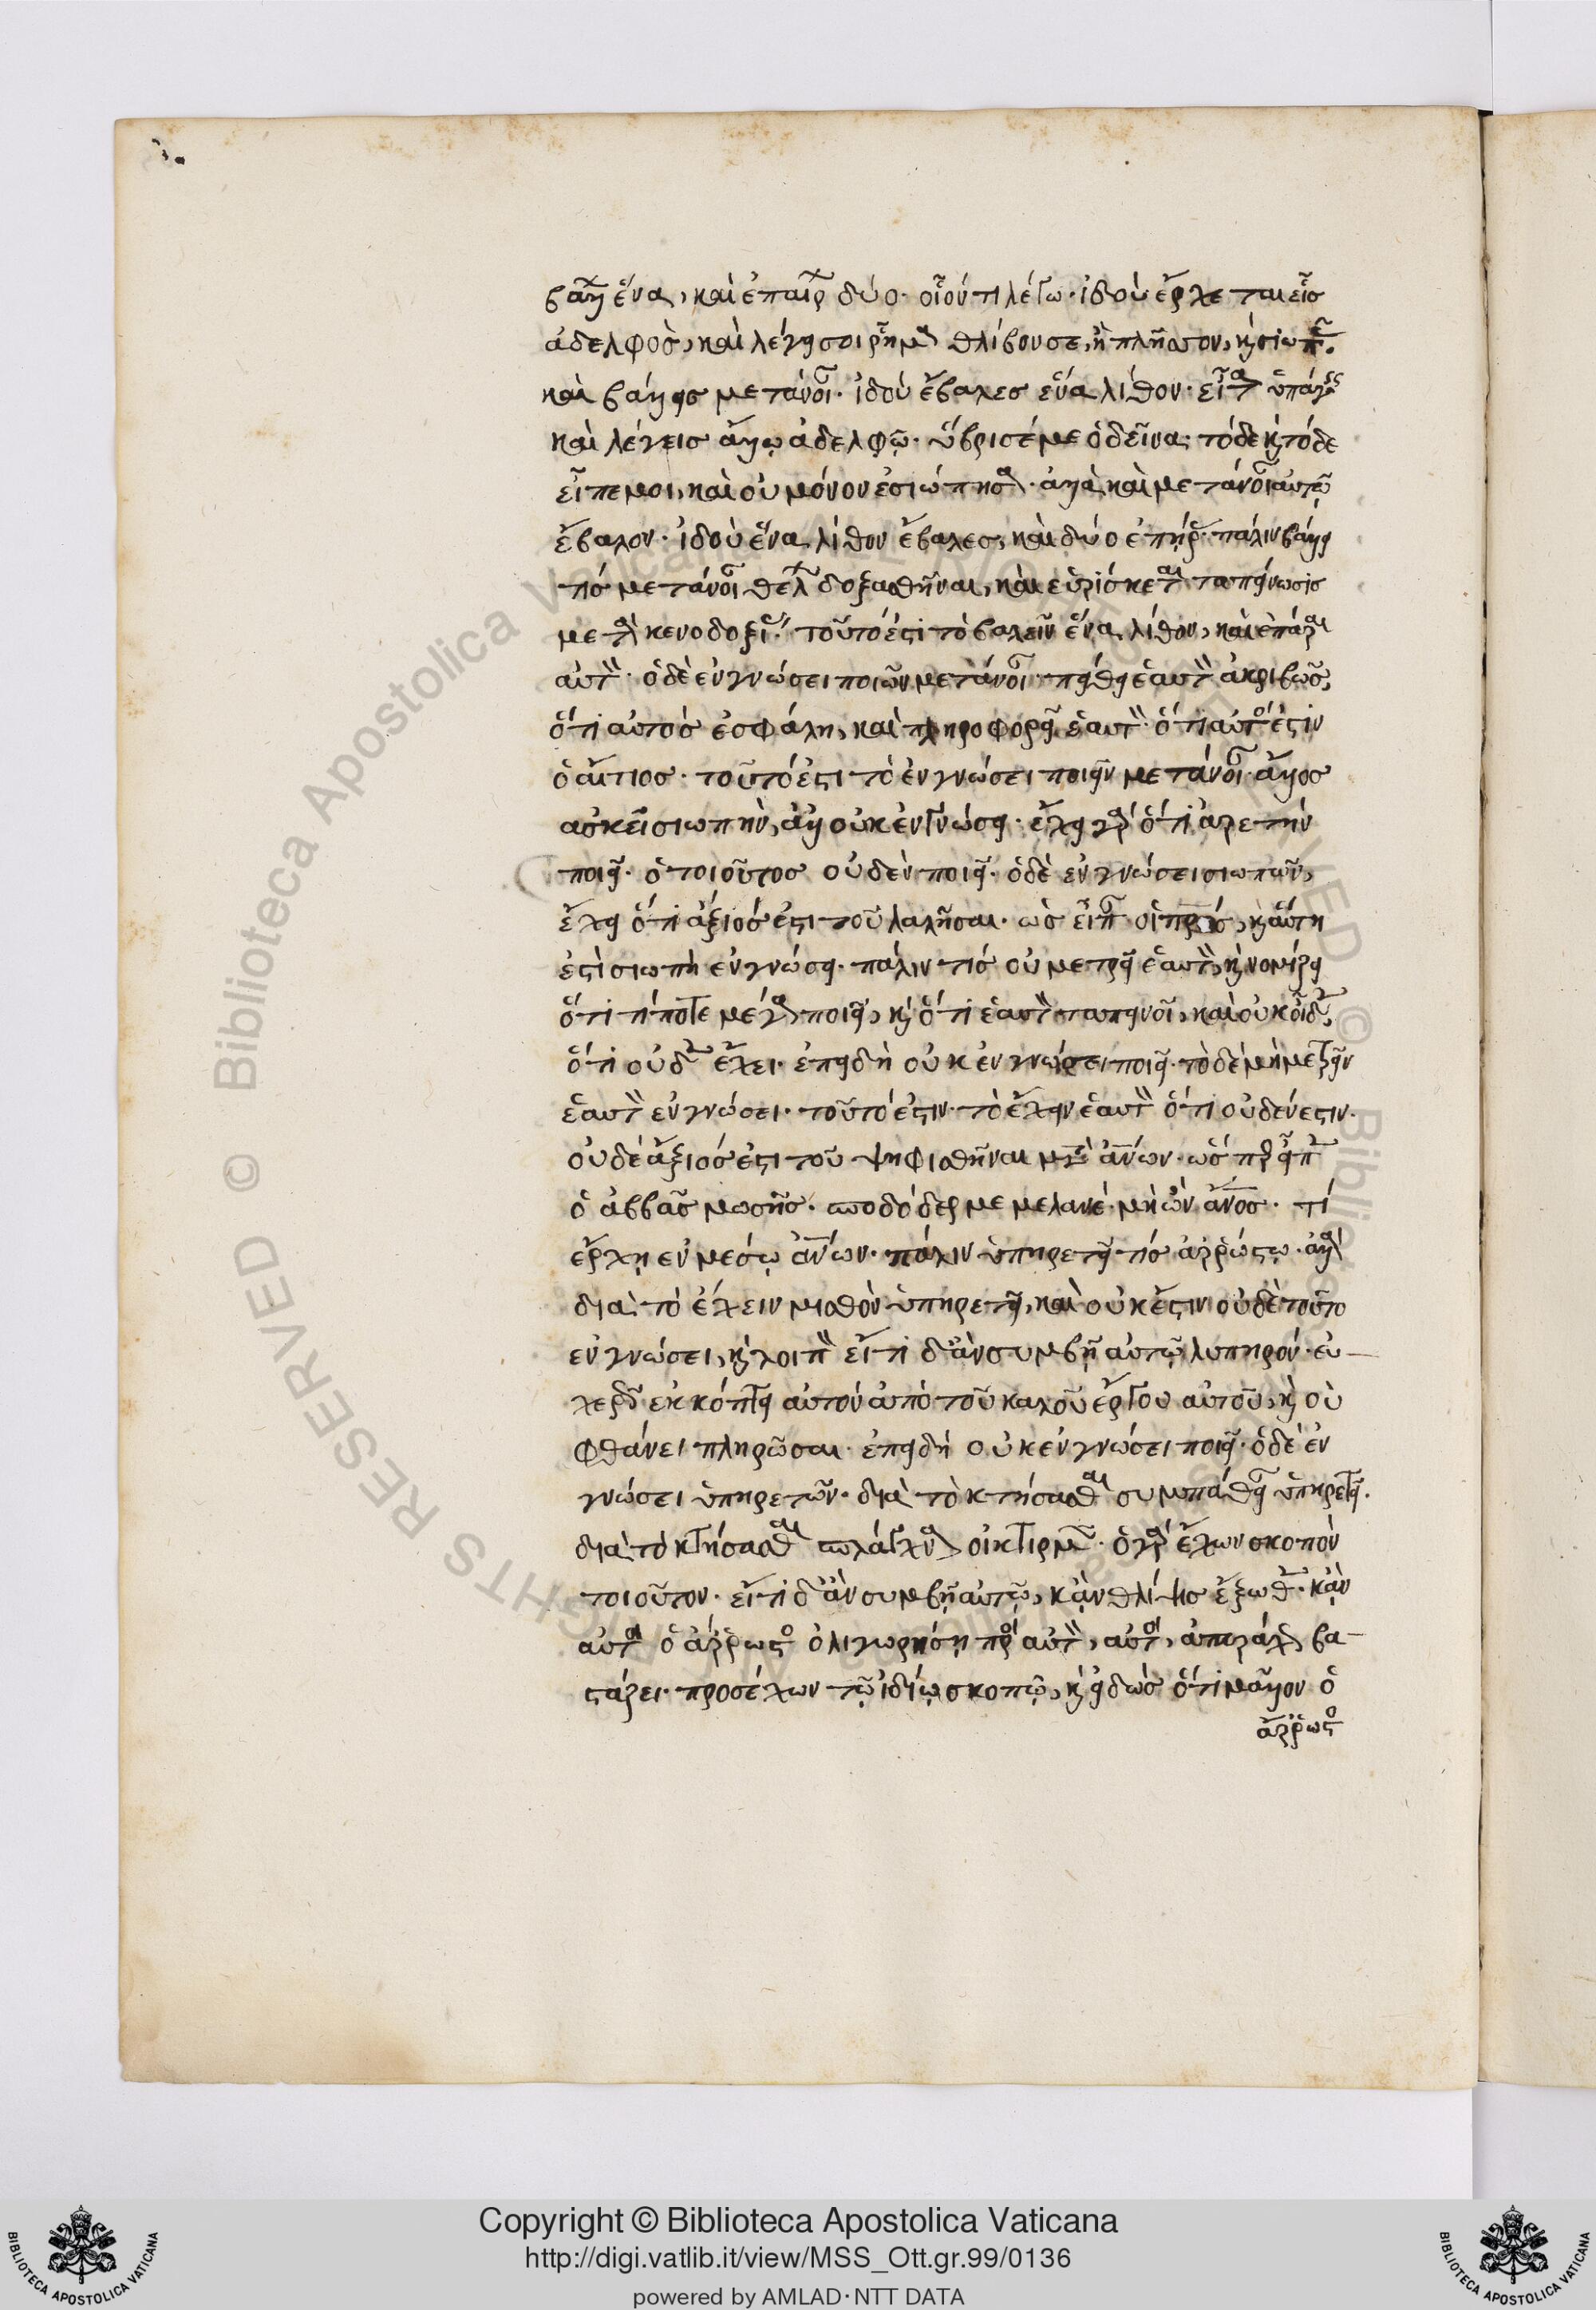 βάλλει ἕνα, καὶ ἐπαίρει δύο. οἷόν τι λέγω. ἰδοὺ ἔρχεται εἷς
ἀδελφὸς, καὶ λέγει σοι ῥῆμα θλίβον σε, ἢ πλῆττον, καὶ σιωπᾷς.
καὶ βάλλεις μετάνοιαν. ἰδοὺ ἔβαλες ἕνα λίθον. εἶτα ὑπάγεις
καὶ λέγεις ἄλλῳ ἀδελφῷ. ὕβρισέ με ὁ δεῖνα. τόδε καὶ τόδε
εἶπε μοι, καὶ οὐ μόνον ἐσιώπησα. ἀλλὰ καὶ μετάνοιαν αὐτῷ
ἔβαλον. ἰδοὺ ἕνα λίθον ἔβαλες, καὶ δύο ἐπῆρες. πάλιν βάλλει
τίς μετάνοιαν θέλων δοξασθῆναι, καὶ εὑρίσκεται ταπείνωσις
μετὰ κενοδοξίας. τοῦτό ἐστι τὸ βαλεῖν ἕνα λίθον, καὶ ἐπάραι
αὐτόν. ὁ δὲ ἐν γνώσει ποιῶν μετάνοιαν. πείθει ἑαυτὸν ἀκριβῶς,
ὅτι αὐτὸς ἐσφάλη, καὶ πληροφορεῖ ἑαυτὸν. ὅτι αὐτός ἐστιν
ὁ αἴτιος. τοῦτό ἐστι τὸ ἐν γνώσει ποιεῖν μετάνοιαν. ἄλλος
ἀσκεῖ σιωπὴν, ἀλλ' οὐκ ἐν γνώσει. ἔχει γὰρ ὅτι ἀρετὴν
ποιεῖ. ὁ τοιοῦτος οὐδὲν ποιεῖ. ὁ δὲ ἐν γνώσει σιωπῶν,
ἔχει ὅτι ἀνάξιός ἐστι τοῦ λαλῆσαι. ὡς εἶπον οἱ πρες, καὶ αὕτη
ἐστὶ σιωπὴ ἐν γνώσει. πάλιν τίς οὐ μετρεῖ ἑαυτὸν, καὶ νομίζει
ὅτι τίποτε μέγα ποιεῖ, καὶ ὅτι ἑαυτὸν ταπεινοῖ, καὶ οὐκ οἶδεν,
ὅτι οὐδὲν ἔχει. ἐπειδὴ οὐκ ἐν γνώσει ποιεῖ. τὸ δὲ μὴ μετρεῖν
ἑαυτὸν ἐν γνώσει. τοῦτό ἐστιν. τὸ ἔχειν ἑαυτὸν ὅτι οὐδέν ἐστιν.
οὐδὲ ἄξιός ἐστι τοῦ ψηφισθῆναι μετὰ ἀνων. ὥσπερ εἶπεν
ὁ ἀββᾶς μωσῆς. σποδόδερμε μελανέ. μὴ ὢν ἄνος. τί
ἔρχῃ ἐν μέσῳ ἀνων. πάλιν ὑπηρετεῖ τίς ἀρρώστῳ. ἀλλὰ
διὰ τὸ ἔχειν μισθὸν ὑπηρετεῖ, καὶ οὐκ ἔστιν οὐδὲ τοῦτο
ἐν γνώσει, καὶ λοιπὸν εἴ τι δ' ἂν συμβῇ αὐτῷ λυπηρόν. εὐ-
χερῶς ἐκκόπτει αὐτὸν ἀπὸ τοῦ καλοῦ ἔργου αὐτοῦ, καὶ οὐ
φθάνει πληρῶσαι. ἐπειδὴ οὐκ ἐν γνώσει ποιεῖ. ὁ δὲ ἐν
γνώσει ὑπηρετῶν. διὰ τὸ κτήσασθαι συμπάθειαν ὑπηρετεῖ.
διὰ τὸ κτήσασθαι σπλάγχνα οἰκτιρμῶν. ὁ γὰρ ἔχων σκοπὸν
τοιοῦτον. εἴ τι δ' ἂν συμβῇ αὐτῷ, κἂν θλίψις ἔξωθεν. κἂν
αὐτὸς ὁ ἄρρωστος ὀλιγωρήσῃ πρὸς αὐτὸν, αὐτὸς ἀταράχως βα-
στάζει. προσέχων τῷ ἰδίῳ σκοπῷ, καὶ εἰδὼς ὅτι μᾶλλον ὁ
ἄρρωστος
Copyright © Biblioteca Apostolica Vaticana
http://digi.vatlib.it/view/MSS_Ott.gr.99/0136
powered by AMLAD·NTT DATA